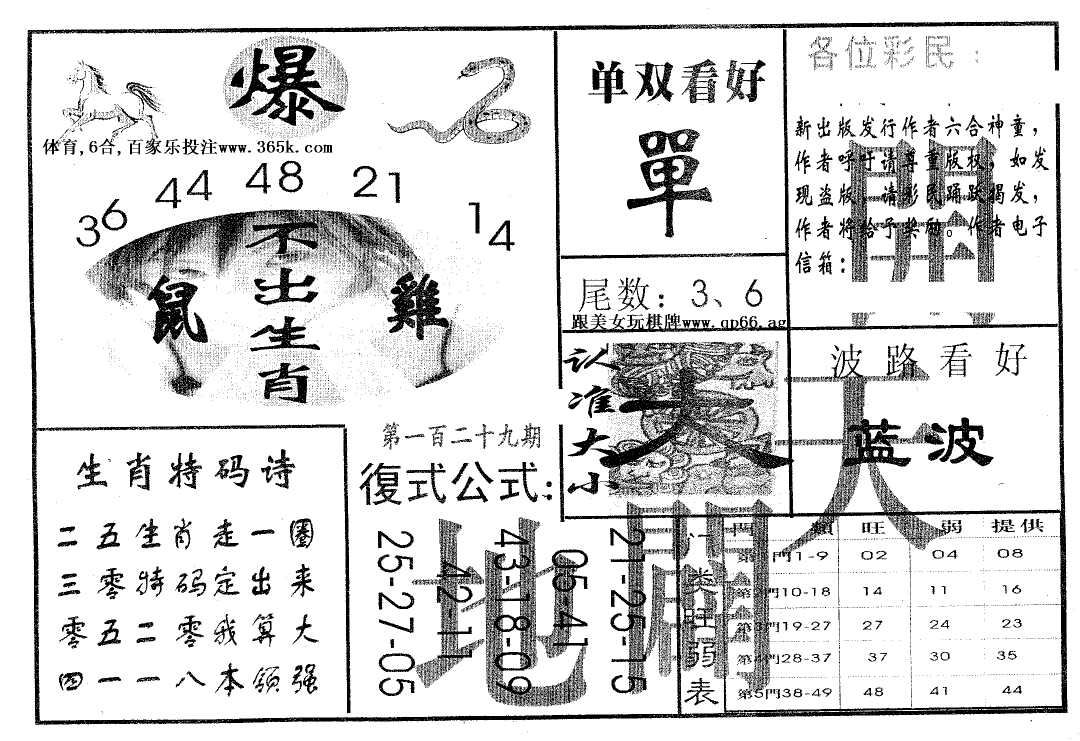 爆
体育,6合,百家乐投注www.365k.com
36 44 48 21 14
不出生肖
鼠
雞
单双看好
單
尾数：3、6
跟美女玩棋牌www.qp66.ag
各位彩民：
新出版发行作者六合神童，
作者呼吁请尊重版权，如发
现盗版，请彩民踊跃揭发，
作者将给予奖励。作者电子
信箱：
认准大小
大
波路看好
蓝波
生肖特码诗
二五生肖走一圈
三零特码定出来
零五二零我算大
四一一八本领强
第一百二十九期
復式公式：
25-27-05
42-11
43-18-09
05-41
21-25-15
门类旺弱表
門 類 旺 弱 提供
第1門1-9 02 04 08
第2門10-18 14 11 16
第3門19-27 27 24 23
第4門28-37 37 30 35
第5門38-49 48 41 44
天
地